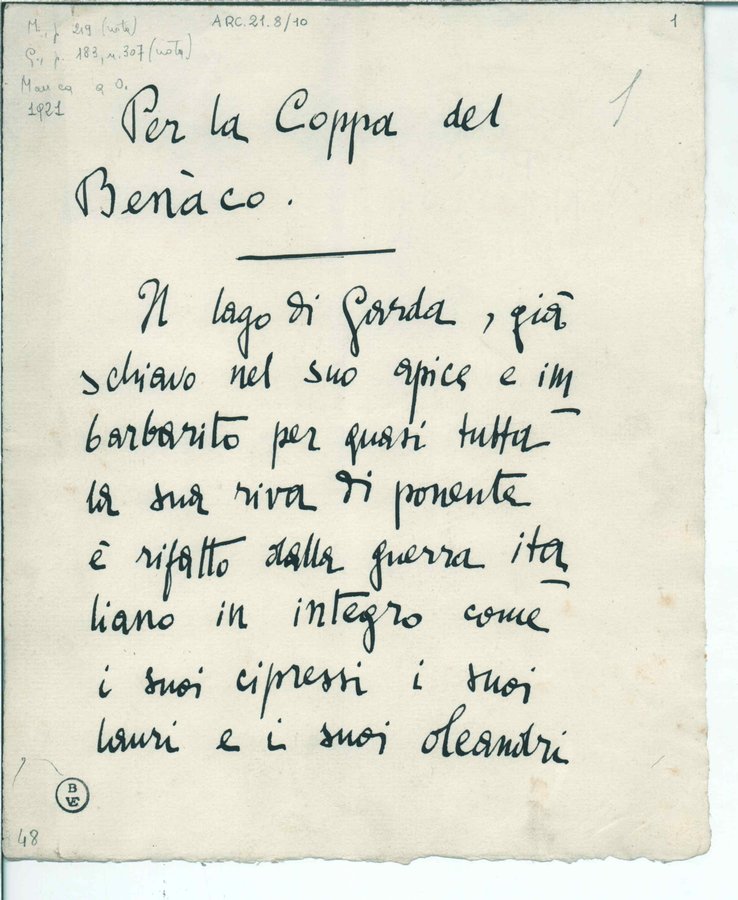 M., p. 219 (nota)
G., p. 183, n. 307 (nota)
Manca a O.
1921
ARC.21.8/10
1
1
Per la Coppa del
Benàco.
Il lago di Garda, già
schiavo nel suo apice e im
barbarito per quasi tutta
la sua riva di ponente
è rifatto dalla guerra ita
liano in integro come
i suoi cipressi i suoi
lauri e i suoi oleandri
B
VE
48